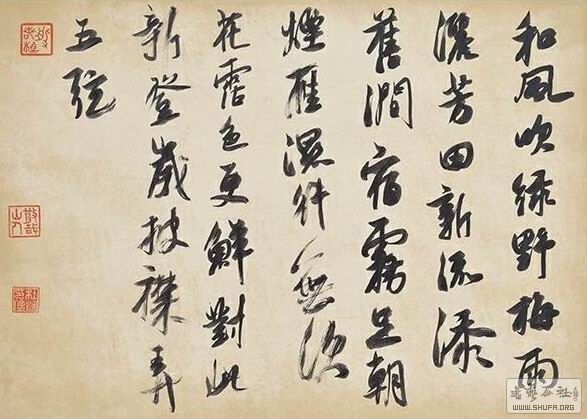 和風吹綠野梅雨
灑芳田新流添
舊澗宿霧足朝
煙雁濕行無次
花霑色更鮮對此
新登歲披襟弄
五弦
WWW.SHUFA.ORG